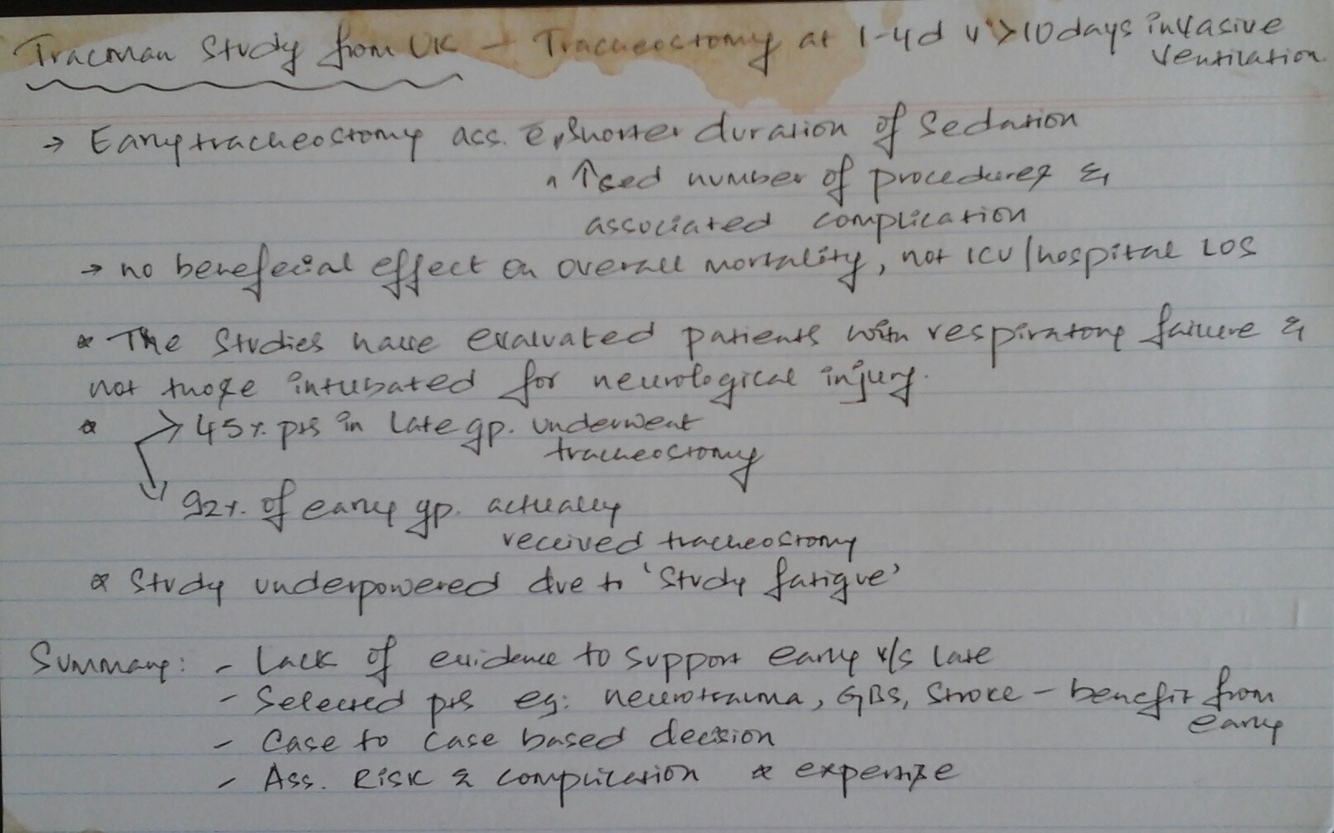 Tracman Study from UK - Tracheostomy at 1-4d v >10days invasive
ventilation.
→ Early tracheostomy ass. c̄ shorter duration of sedation
↑sed number of procedures &
associated complication
→ no benefecial effect on overall mortality, not ICU/hospital LOS
* The studies have evaluated patients with respiratory failure &
not those intubated for neurological injury.
* → 45% pts in late gp. underwent
tracheostomy
→ 92% of early gp. actually
received tracheostomy
* Study underpowered due to 'study fatigue'
Summary: - Lack of evidence to support early v/s late
- Selected pts eg: neurotrauma, GBS, Stroke - benefit from
early
- Case to case based decision
- Ass. Risk & complication * expense